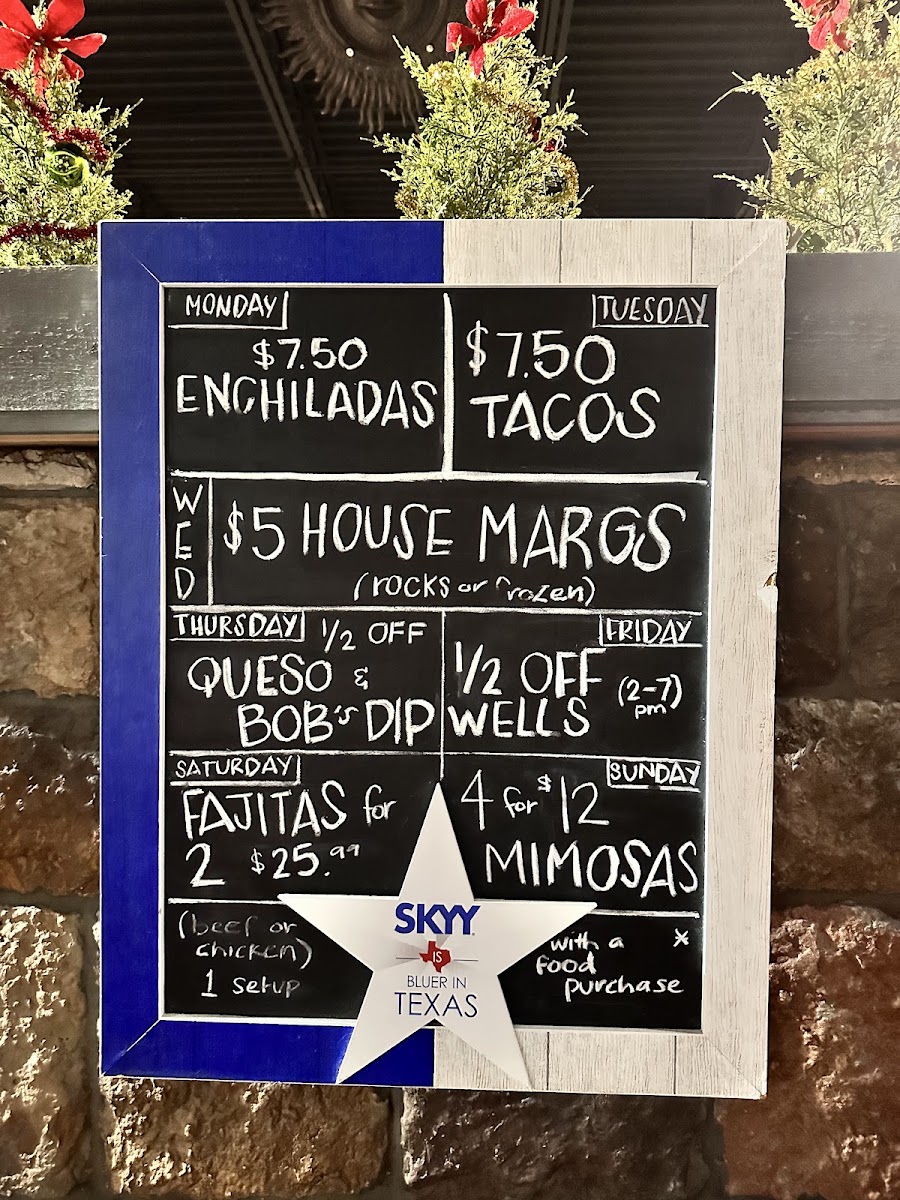 MONDAY
$7.50
ENCHILADAS
TUESDAY
$7.50
TACOS
WED
$5 HOUSE MARGS
(rocks or frozen)
THURSDAY 1/2 OFF
QUESO &
BOB's DIP
FRIDAY
1/2 OFF
WELLS
(2-7)
pm
SATURDAY
FAJITAS for
2 $25.99
(beef or
chicken)
1 setup
SUNDAY
4 for $12
MIMOSAS
with a *
food
purchase
SKYY
IS
BLUER IN
TEXAS